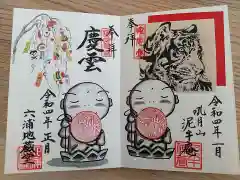 奉拝
慶雲
令和四年正月
六浦地蔵堂
奉拝
令和四年一月
吼月山
泥牛庵